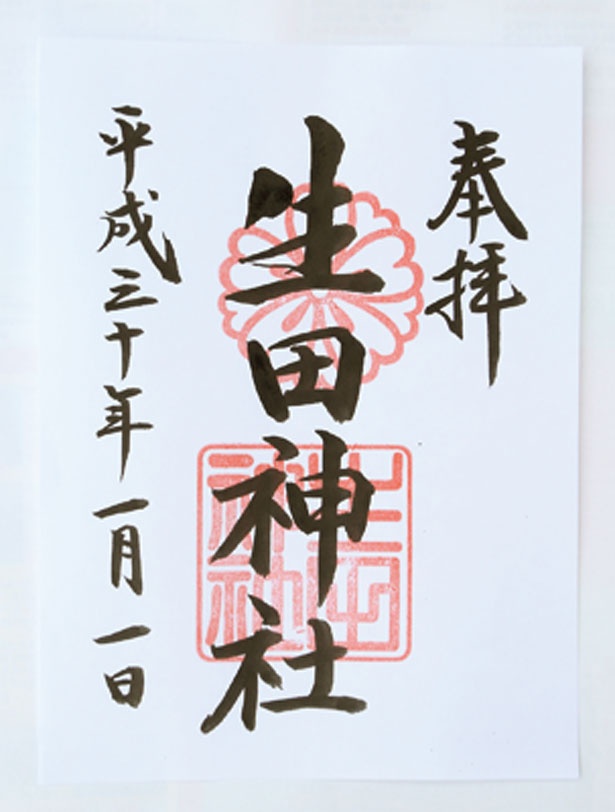 奉拝
生田神社
平成三十年一月一日
生田神社